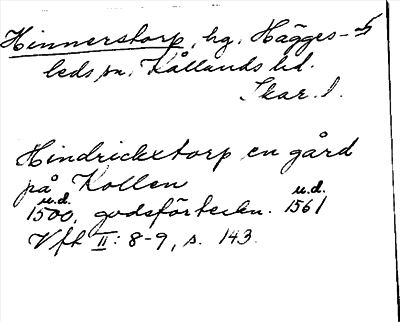 Hinnerstorp, hg, Hägges- 5
leds sn, Kållands hd.
Skar. l.
Hindrickxtorp en gård
på Kollen
u.d. u.d.
1500, godsförteckn. 1561
Vft II: 8-9, s. 143.